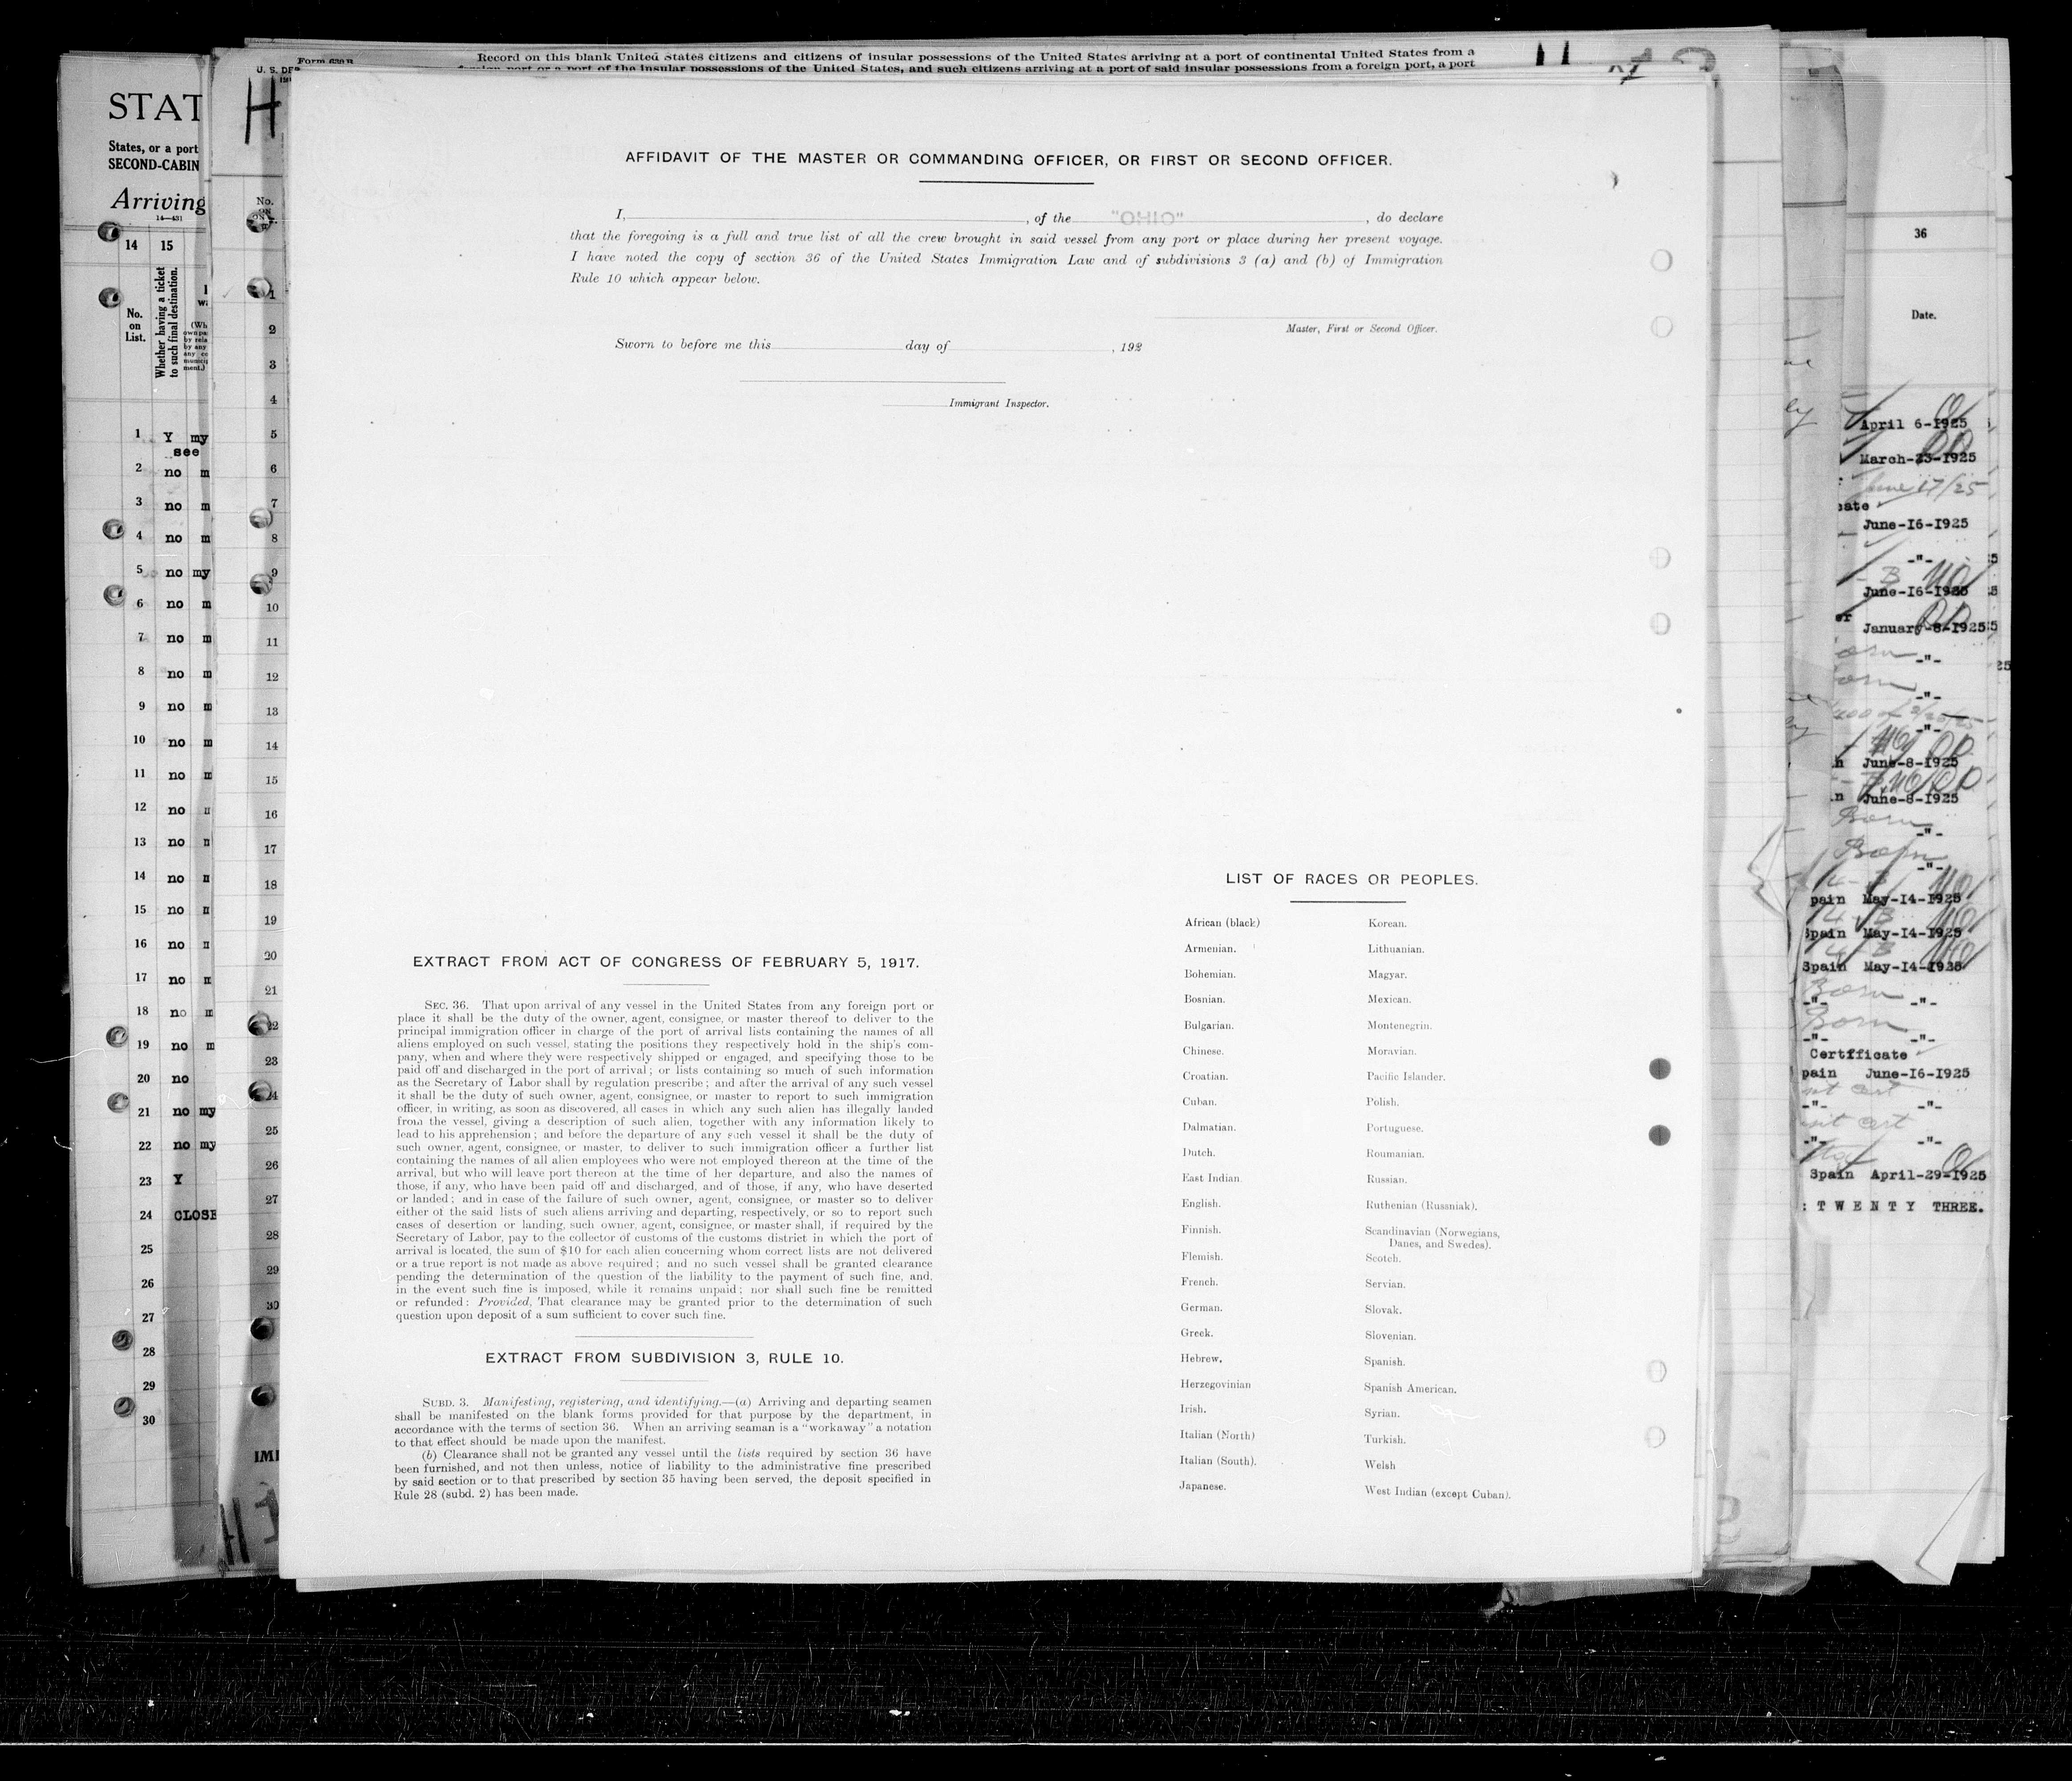 Form 630 B
Record on this blank United States citizens and citizens of insular possessions of the United States arriving at a port of continental United States from a
foreign port or a port of the insular possessions of the United States, and such citizens arriving at a port of said insular possessions from a foreign port, a port
STAT
States, or a port
SECOND-CABIN
Arriving
14—431
14 15
No. on List.
Whether having a ticket to such final destination.
1 Y my
see
2 no m
3 no m
4 no m
5 no my
6 no m
7 no m
8 no m
9 no m
10 no m
11 no m
12 no
13 no
14 no
15 no
16 no
17 no
18 no m
19 no m
20 no
21 no my
22 no my
23 Y
24 CLOSE
25
26
27
28
29
30
H
No.
1
2
3
4
5
6
7
8
9
10
11
12
13
14
15
16
17
18
19
20
21
22
23
24
25
26
27
28
29
30
IMI
H1
AFFIDAVIT OF THE MASTER OR COMMANDING OFFICER, OR FIRST OR SECOND OFFICER.
I, , of the "OHIO" , do declare
that the foregoing is a full and true list of all the crew brought in said vessel from any port or place during her present voyage.
I have noted the copy of section 36 of the United States Immigration Law and of subdivisions 3 (a) and (b) of Immigration
Rule 10 which appear below.
Master, First or Second Officer.
Sworn to before me this day of , 192
Immigrant Inspector.
EXTRACT FROM ACT OF CONGRESS OF FEBRUARY 5, 1917.
SEC. 36. That upon arrival of any vessel in the United States from any foreign port or
place it shall be the duty of the owner, agent, consignee, or master thereof to deliver to the
principal immigration officer in charge of the port of arrival lists containing the names of all
aliens employed on such vessel, stating the positions they respectively hold in the ship's com-
pany, when and where they were respectively shipped or engaged, and specifying those to be
paid off and discharged in the port of arrival; or lists containing so much of such information
as the Secretary of Labor shall by regulation prescribe; and after the arrival of any such vessel
it shall be the duty of such owner, agent, consignee, or master to report to such immigration
officer, in writing, as soon as discovered, all cases in which any such alien has illegally landed
from the vessel, giving a description of such alien, together with any information likely to
lead to his apprehension; and before the departure of any such vessel it shall be the duty of
such owner, agent, consignee, or master, to deliver to such immigration officer a further list
containing the names of all alien employees who were not employed thereon at the time of the
arrival, but who will leave port thereon at the time of her departure, and also the names of
those, if any, who have been paid off and discharged, and of those, if any, who have deserted
or landed; and in case of the failure of such owner, agent, consignee, or master so to deliver
either of the said lists of such aliens arriving and departing, respectively, or so to report such
cases of desertion or landing, such owner, agent, consignee, or master shall, if required by the
Secretary of Labor, pay to the collector of customs of the customs district in which the port of
arrival is located, the sum of $10 for each alien concerning whom correct lists are not delivered
or a true report is not made as above required; and no such vessel shall be granted clearance
pending the determination of the question of the liability to the payment of such fine, and,
in the event such fine is imposed, while it remains unpaid; nor shall such fine be remitted
or refunded: Provided, That clearance may be granted prior to the determination of such
question upon deposit of a sum sufficient to cover such fine.
EXTRACT FROM SUBDIVISION 3, RULE 10.
SUBD. 3. Manifesting, registering, and identifying.—(a) Arriving and departing seamen
shall be manifested on the blank forms provided for that purpose by the department, in
accordance with the terms of section 36. When an arriving seaman is a "workaway" a notation
to that effect should be made upon the manifest.
(b) Clearance shall not be granted any vessel until the lists required by section 36 have
been furnished, and not then unless, notice of liability to the administrative fine prescribed
by said section or to that prescribed by section 35 having been served, the deposit specified in
Rule 28 (subd. 2) has been made.
LIST OF RACES OR PEOPLES.
African (black)
Armenian.
Bohemian.
Bosnian.
Bulgarian.
Chinese.
Croatian.
Cuban.
Dalmatian.
Dutch.
East Indian.
English.
Finnish.
Flemish.
French.
German.
Greek.
Hebrew.
Herzegovinian
Irish.
Italian (North)
Italian (South).
Japanese.
Korean.
Lithuanian.
Magyar.
Mexican.
Montenegrin.
Moravian.
Pacific Islander.
Polish.
Portuguese.
Roumanian.
Russian.
Ruthenian (Russniak).
Scandinavian (Norwegians,
Danes, and Swedes).
Scotch.
Servian.
Slovak.
Slovenian.
Spanish.
Spanish American.
Syrian.
Turkish.
Welsh
West Indian (except Cuban).
36
Date.
April 6-1925
March-23-1925
June 17/25
June-16-1925
-"-
June-16-1925
January-8-1925
-"-
-"-
-"-
June-8-1925
June-8-1925
Born
-"-
Born
-"-
pain May-14-1925
Spain May-14-1925
Spain May-14-1925
Born
-"- -"-
Born
-"- -"-
Certificate
pain June-16-1925
-"- -"-
-"- -"-
Spain April-29-1925
: T W E N T Y THREE.